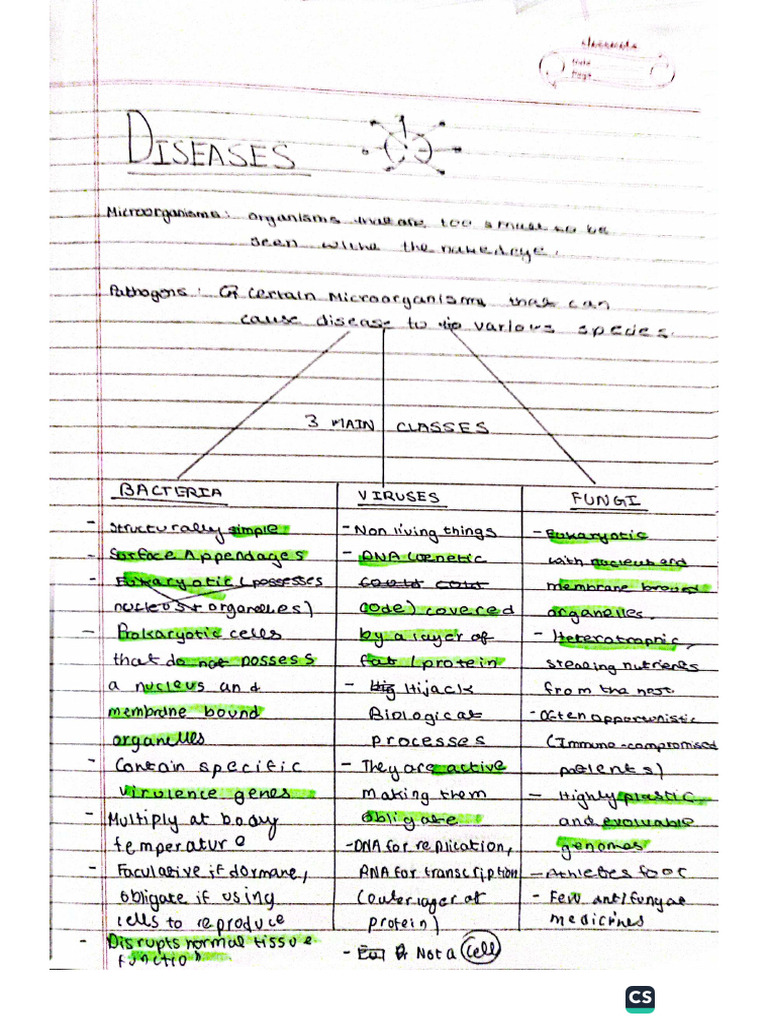 classmate
Date
Page
DISEASES
Microorganisms: organisms that are too small to be
seen with the naked eye.
Pathogens: Of certain Microorganisms that can
cause disease to various species.
3 MAIN CLASSES
BACTERIA
- Structurally simple
- Surface Appendages
- Eukaryotic (possesses
nucleus + organelles)
- Prokaryotic cells
that do not possess
a nucleus and
membrane bound
organelles
- Contain specific
virulence genes
- Multiply at body
temperature
- Faculative if dormant,
obligate if using
cells to reproduce
- Disrupts normal tissue
function
VIRUSES
- Non living things
- DNA (Genetic
code) covered
by a layer of
fat / protein
- Hijack
Biological
processes
- They are active
making them
obligate
- DNA for replication,
RNA for transcription
(outer layer of
protein)
- Not a cell
FUNGI
- Eukaryotic
with nucleus and
membrane bound
organelles.
- Heterotrophic,
stealing nutrients
from the host
- Often opportunistic
(Immune-compromised
patients)
- Highly plastic
and evolvable
genomes
- Athletes foot
- Few antifungal
medicines
CS